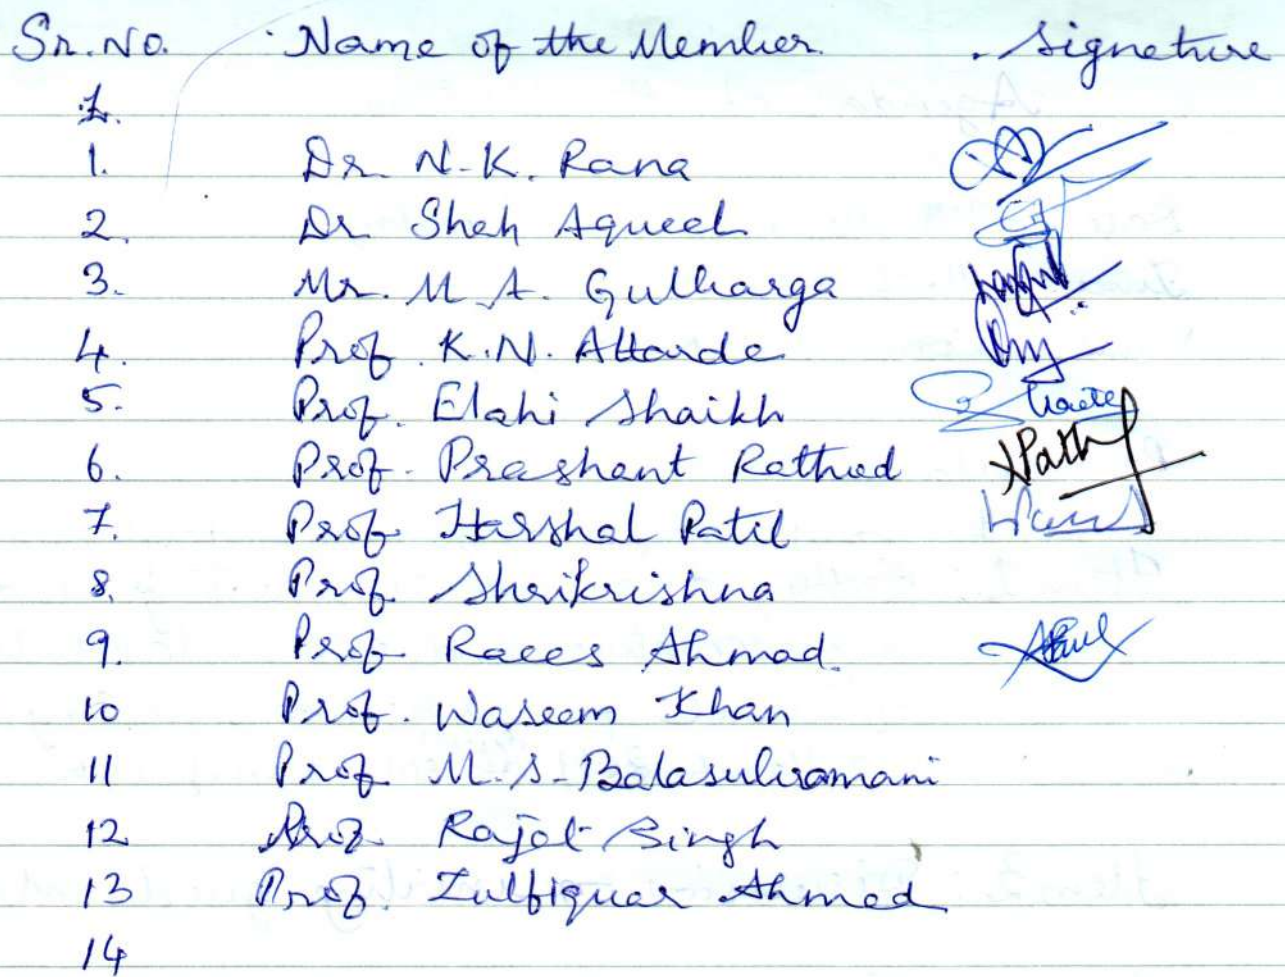 Sr. No. Name of the Member Signature
1.
1. Dr. N.K. Rana
2. Dr. Shah Aqueel
3. Mr. M.A. Gulbarga
4. Prof. K.N. Attarde
5. Prof. Elahi Shaikh
6. Prof. Prashant Rathod
7. Prof. Harshal Patil
8. Prof. Shrikrishna
9. Prof. Raees Ahmad.
10 Prof. Waseem Khan
11 Prof. M.S. Balasubramani
12 Prof. Rajat Singh
13 Prof. Zulfiquar Ahmed
14